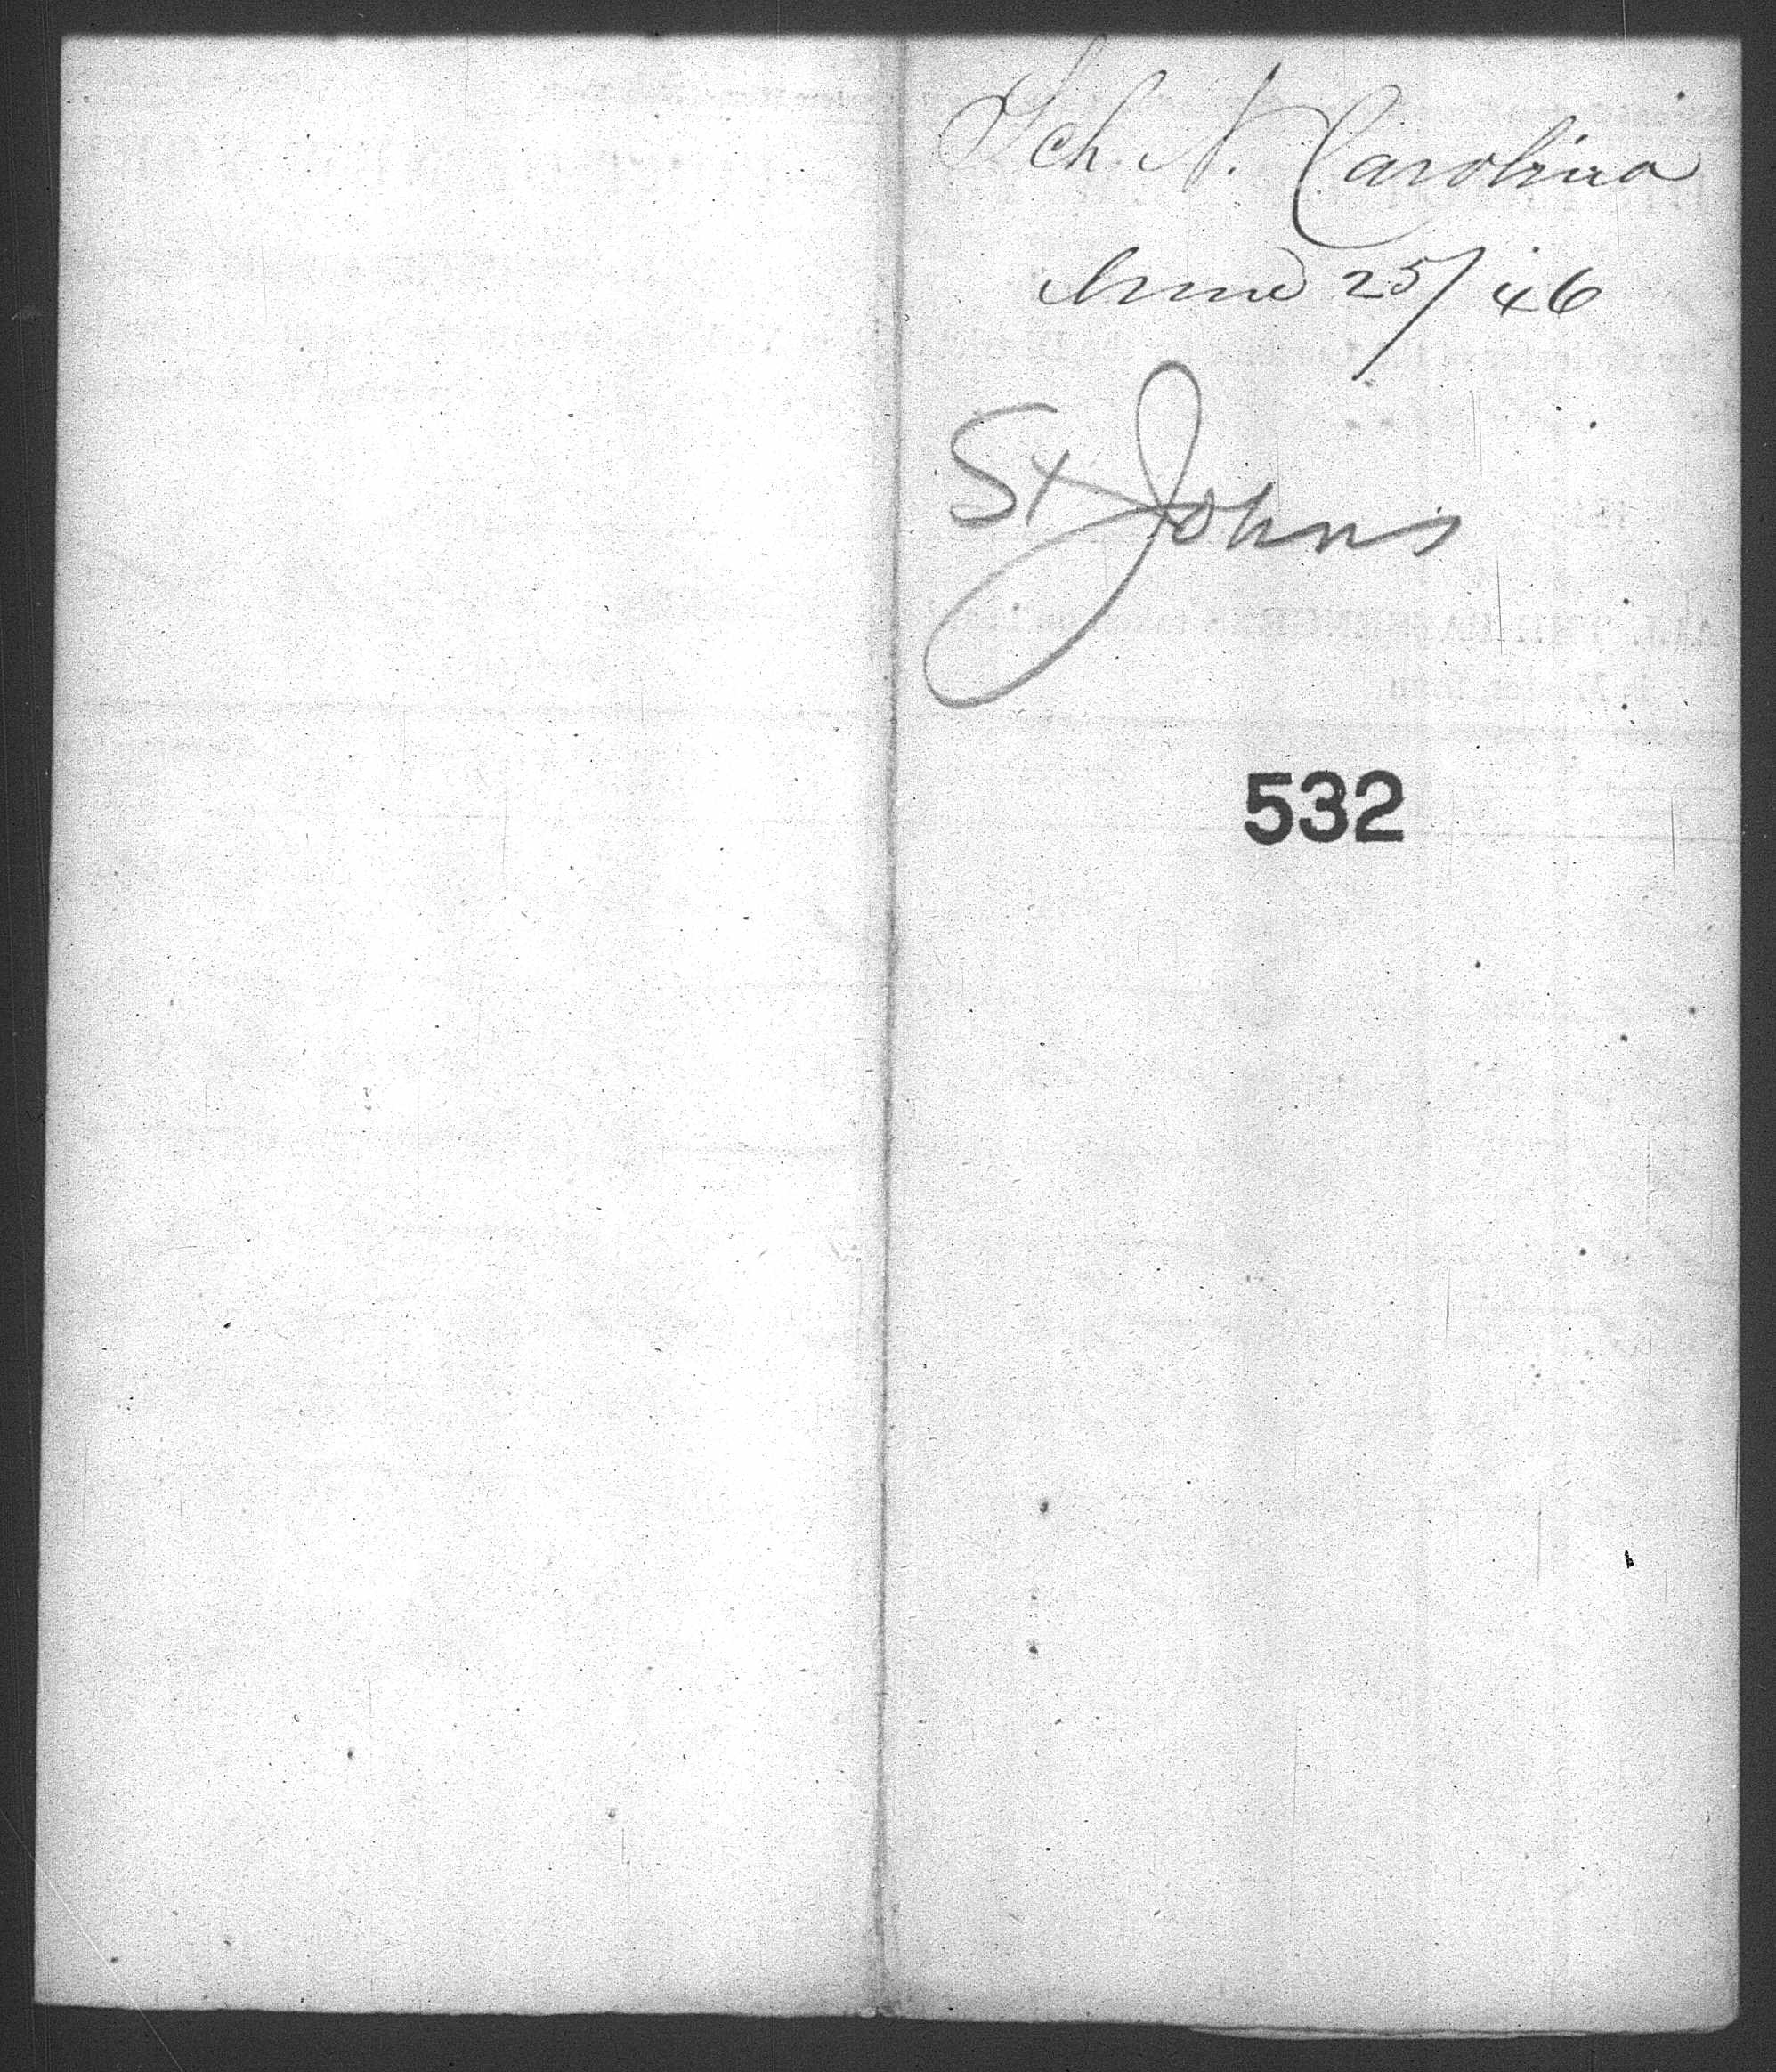 Sch. N. Carolina
June 25/46
St Johns
532